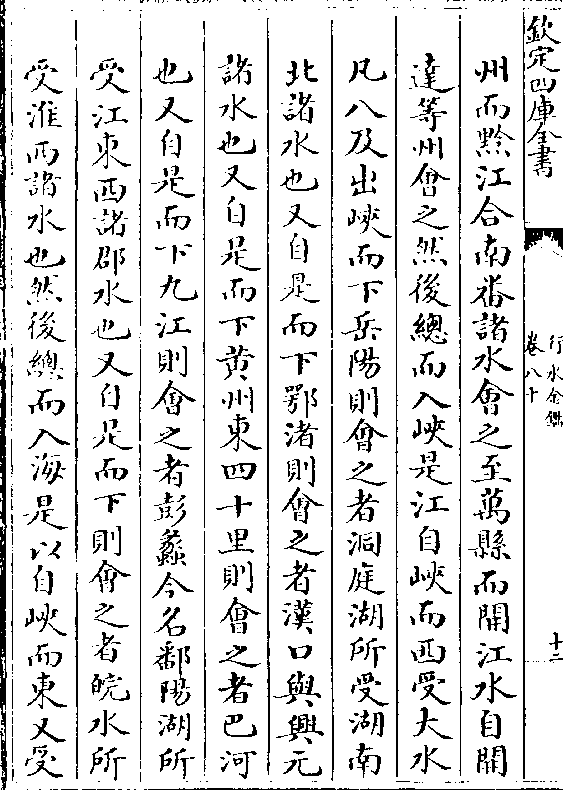 欽定四庫全書
行水金鑑
卷八十
十二
州而黔江合南畨諸水會之至萬縣而開江水自開
達等州會之然後總而入峽是江自峽而西受大水
凡八及出峽而下岳陽則會之者洞庭湖所受湖南
北諸水也又自是而下鄂渚則會之者漢口與興元
諸水也又自是而下黄州東四十里則會之者巴河
也又自是而下九江則會之者彭蠡今名鄱陽湖所
受江東西諸郡水也又自是而下則會之者皖水所
受淮西諸水也然後總而入海是以自峽而東又受